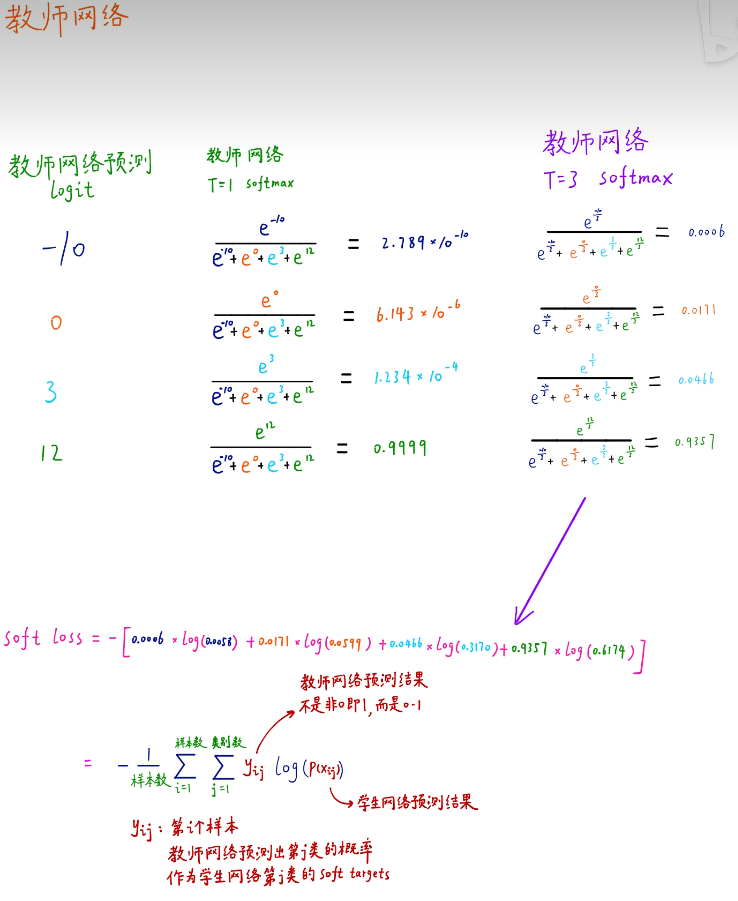 教师网络
教师网络预测
logit
教师网络
T=1 softmax
教师网络
T=3 softmax
-10
e^-10 / (e^-10 + e^0 + e^3 + e^12) = 2.789×10^-10
e^(-10/3) / (e^(-10/3) + e^(0/3) + e^(3/3) + e^(12/3)) = 0.0006
0
e^0 / (e^-10 + e^0 + e^3 + e^12) = 6.143×10^-6
e^(0/3) / (e^(-10/3) + e^(0/3) + e^(3/3) + e^(12/3)) = 0.0171
3
e^3 / (e^-10 + e^0 + e^3 + e^12) = 1.234×10^-4
e^(3/3) / (e^(-10/3) + e^(0/3) + e^(3/3) + e^(12/3)) = 0.0466
12
e^12 / (e^-10 + e^0 + e^3 + e^12) = 0.9999
e^(12/3) / (e^(-10/3) + e^(0/3) + e^(3/3) + e^(12/3)) = 0.9357
soft loss = -[0.0006 × log(0.0058) + 0.0171 × log(0.0599) + 0.0466 × log(0.3170) + 0.9357 × log(0.6174)]
教师网络预测结果
不是非0即1,而是0-1
= - 1/样本数 ∑_{i=1}^{样本数} ∑_{j=1}^{类别数} y_ij log(P(x_ij))
学生网络预测结果
y_ij：第i个样本
教师网络预测出第j类的概率
作为学生网络第j类的soft targets